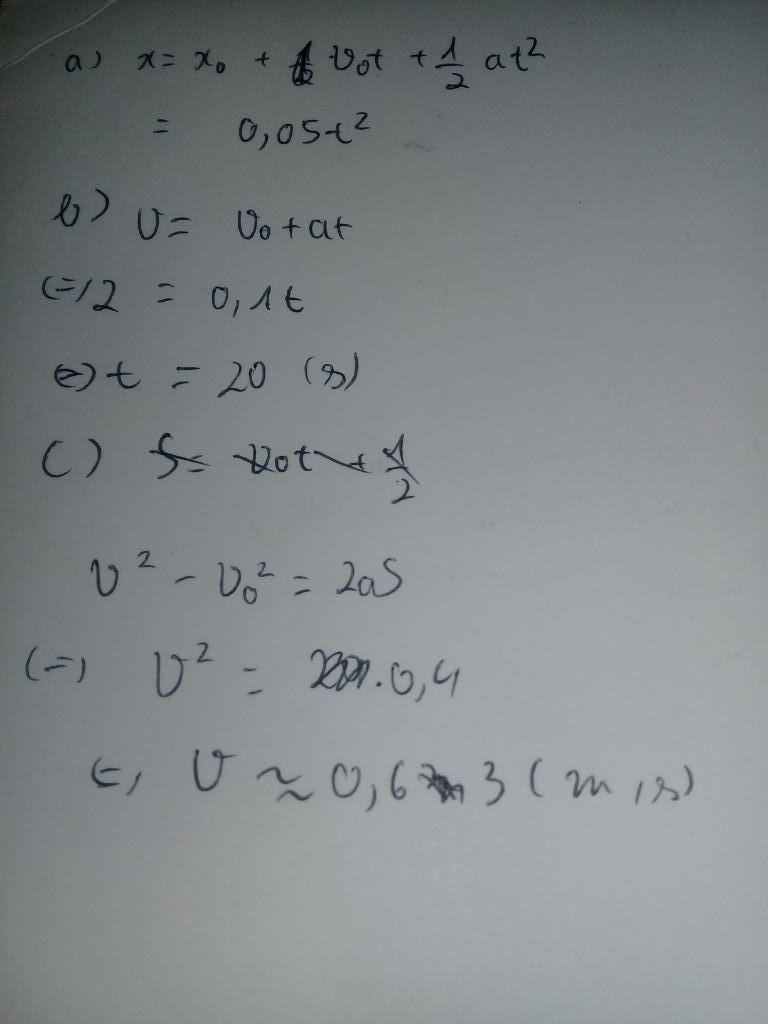 a) x = x₀ + v₀t + 1/2 at²
= 0,05t²
b) v = v₀ + at
(=) 2 = 0,1t
(=) t = 20 (s)
c) S = v₀t + 1/2
v² - v₀² = 2aS
(=) v² = .0,4
(=) v ≈ 0,63 (m/s)